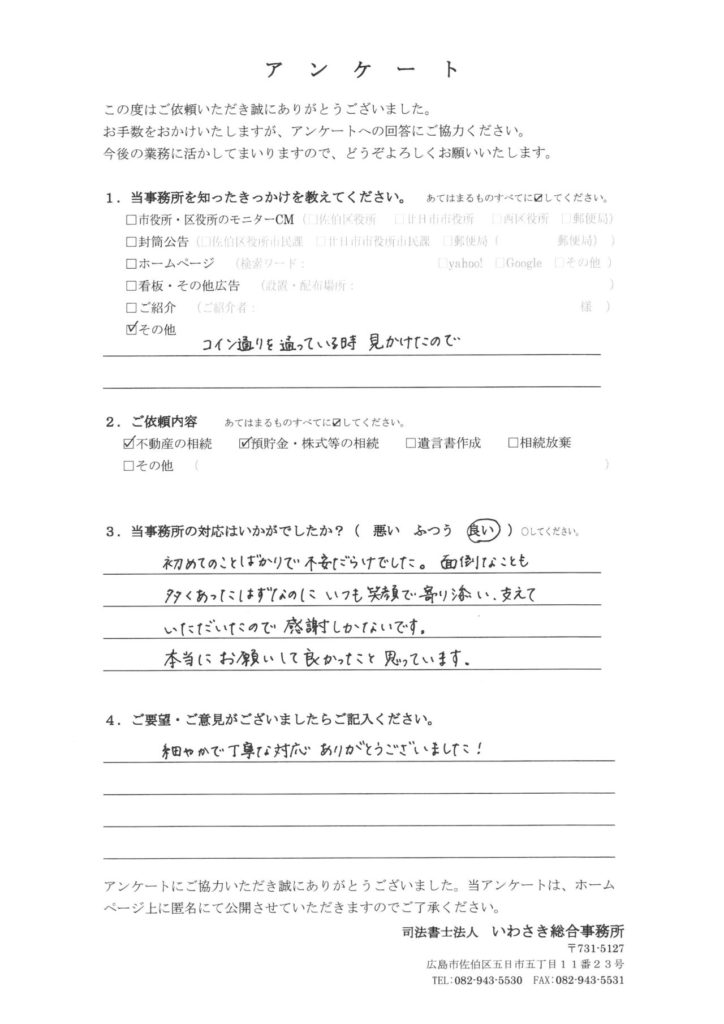 アンケート
この度はご依頼いただき誠にありがとうございました。
お手数をおかけいたしますが、アンケートへの回答にご協力ください。
今後の業務に活かしてまいりますので、どうぞよろしくお願いいたします。
1．当事務所を知ったきっかけを教えてください。 あてはまるものすべてに☑してください。
□市役所・区役所のモニターCM（□佐伯区役所 □廿日市市役所 □西区役所 □郵便局）
□封筒公告（□佐伯区役所市民課 □廿日市市役所市民課 □郵便局（ 郵便局））
□ホームページ （検索ワード： □yahoo! □Google □その他）
□看板・その他広告 （設置・配布場所： ）
□ご紹介 （ご紹介者： 様 ）
☑その他
コイン通りを通っている時 見かけたので
2．ご依頼内容 あてはまるものすべてに☑してください。
☑不動産の相続 ☑預貯金・株式等の相続 □遺言書作成 □相続放棄
□その他 （ ）
3．当事務所の対応はいかがでしたか？（ 悪い ふつう 良い ）○してください。
初めてのことばかりで不安だらけでした。面倒なことも
多くあったはずなのに いつも笑顔で寄り添い、支えて
いただいたので 感謝しかないです。
本当に お願いして良かったこと 思っています。
4．ご要望・ご意見がございましたらご記入ください。
細やかで丁寧な対応 ありがとうございました！
アンケートにご協力いただき誠にありがとうございました。当アンケートは、ホーム
ページ上に匿名にて公開させていただきますのでご了承ください。
司法書士法人 いわさき総合事務所
〒731-5127
広島市佐伯区五日市五丁目１１番２３号
TEL：082-943-5530 FAX：082-943-5531